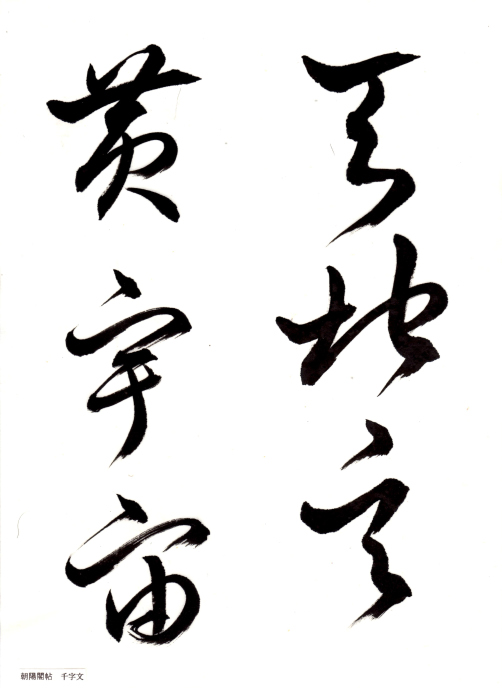 天地玄
黄宇宙
朝陽閣帖　千字文